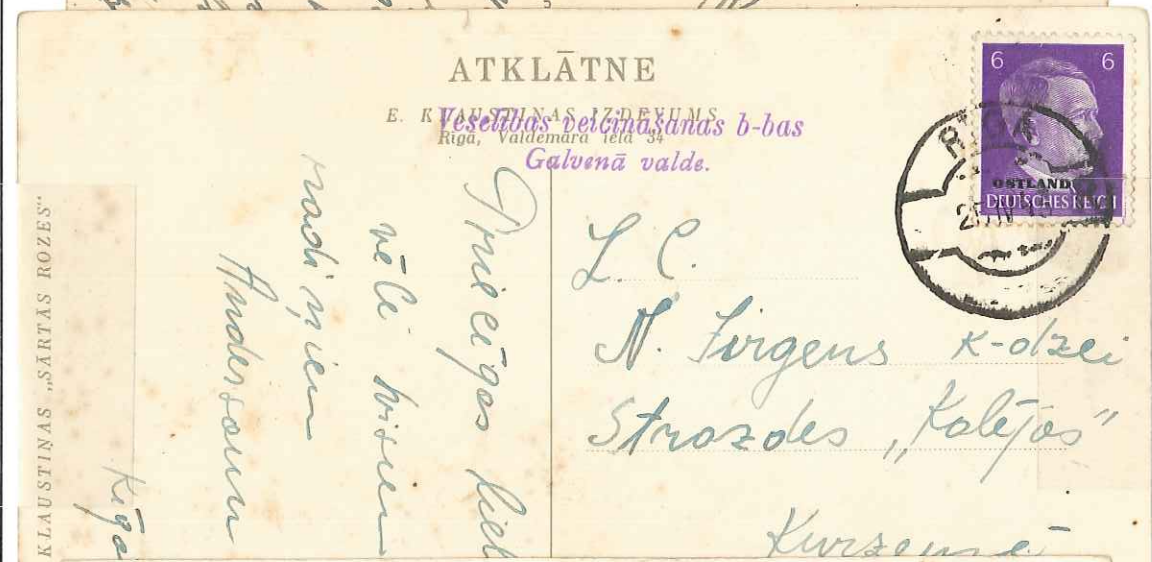 ATKLĀTNE
E. KLAUSTIŅAS IZDEVUMS
Rīgā, Valdemāra ielā 34
Veselības veicināšanas b-bas
Galvenā valde.
6 6
OSTLAND
DEUTSCHES REICH
RIGA
KLAUSTIŅAS „SĀRTĀS ROZES"
Priecīgas Liel
vēlē visiem
radiņiem
Andersonu
Rīga
L. C.
N. Zirgens k-dzei
Strazdes „Kalējos"
Kurzemē